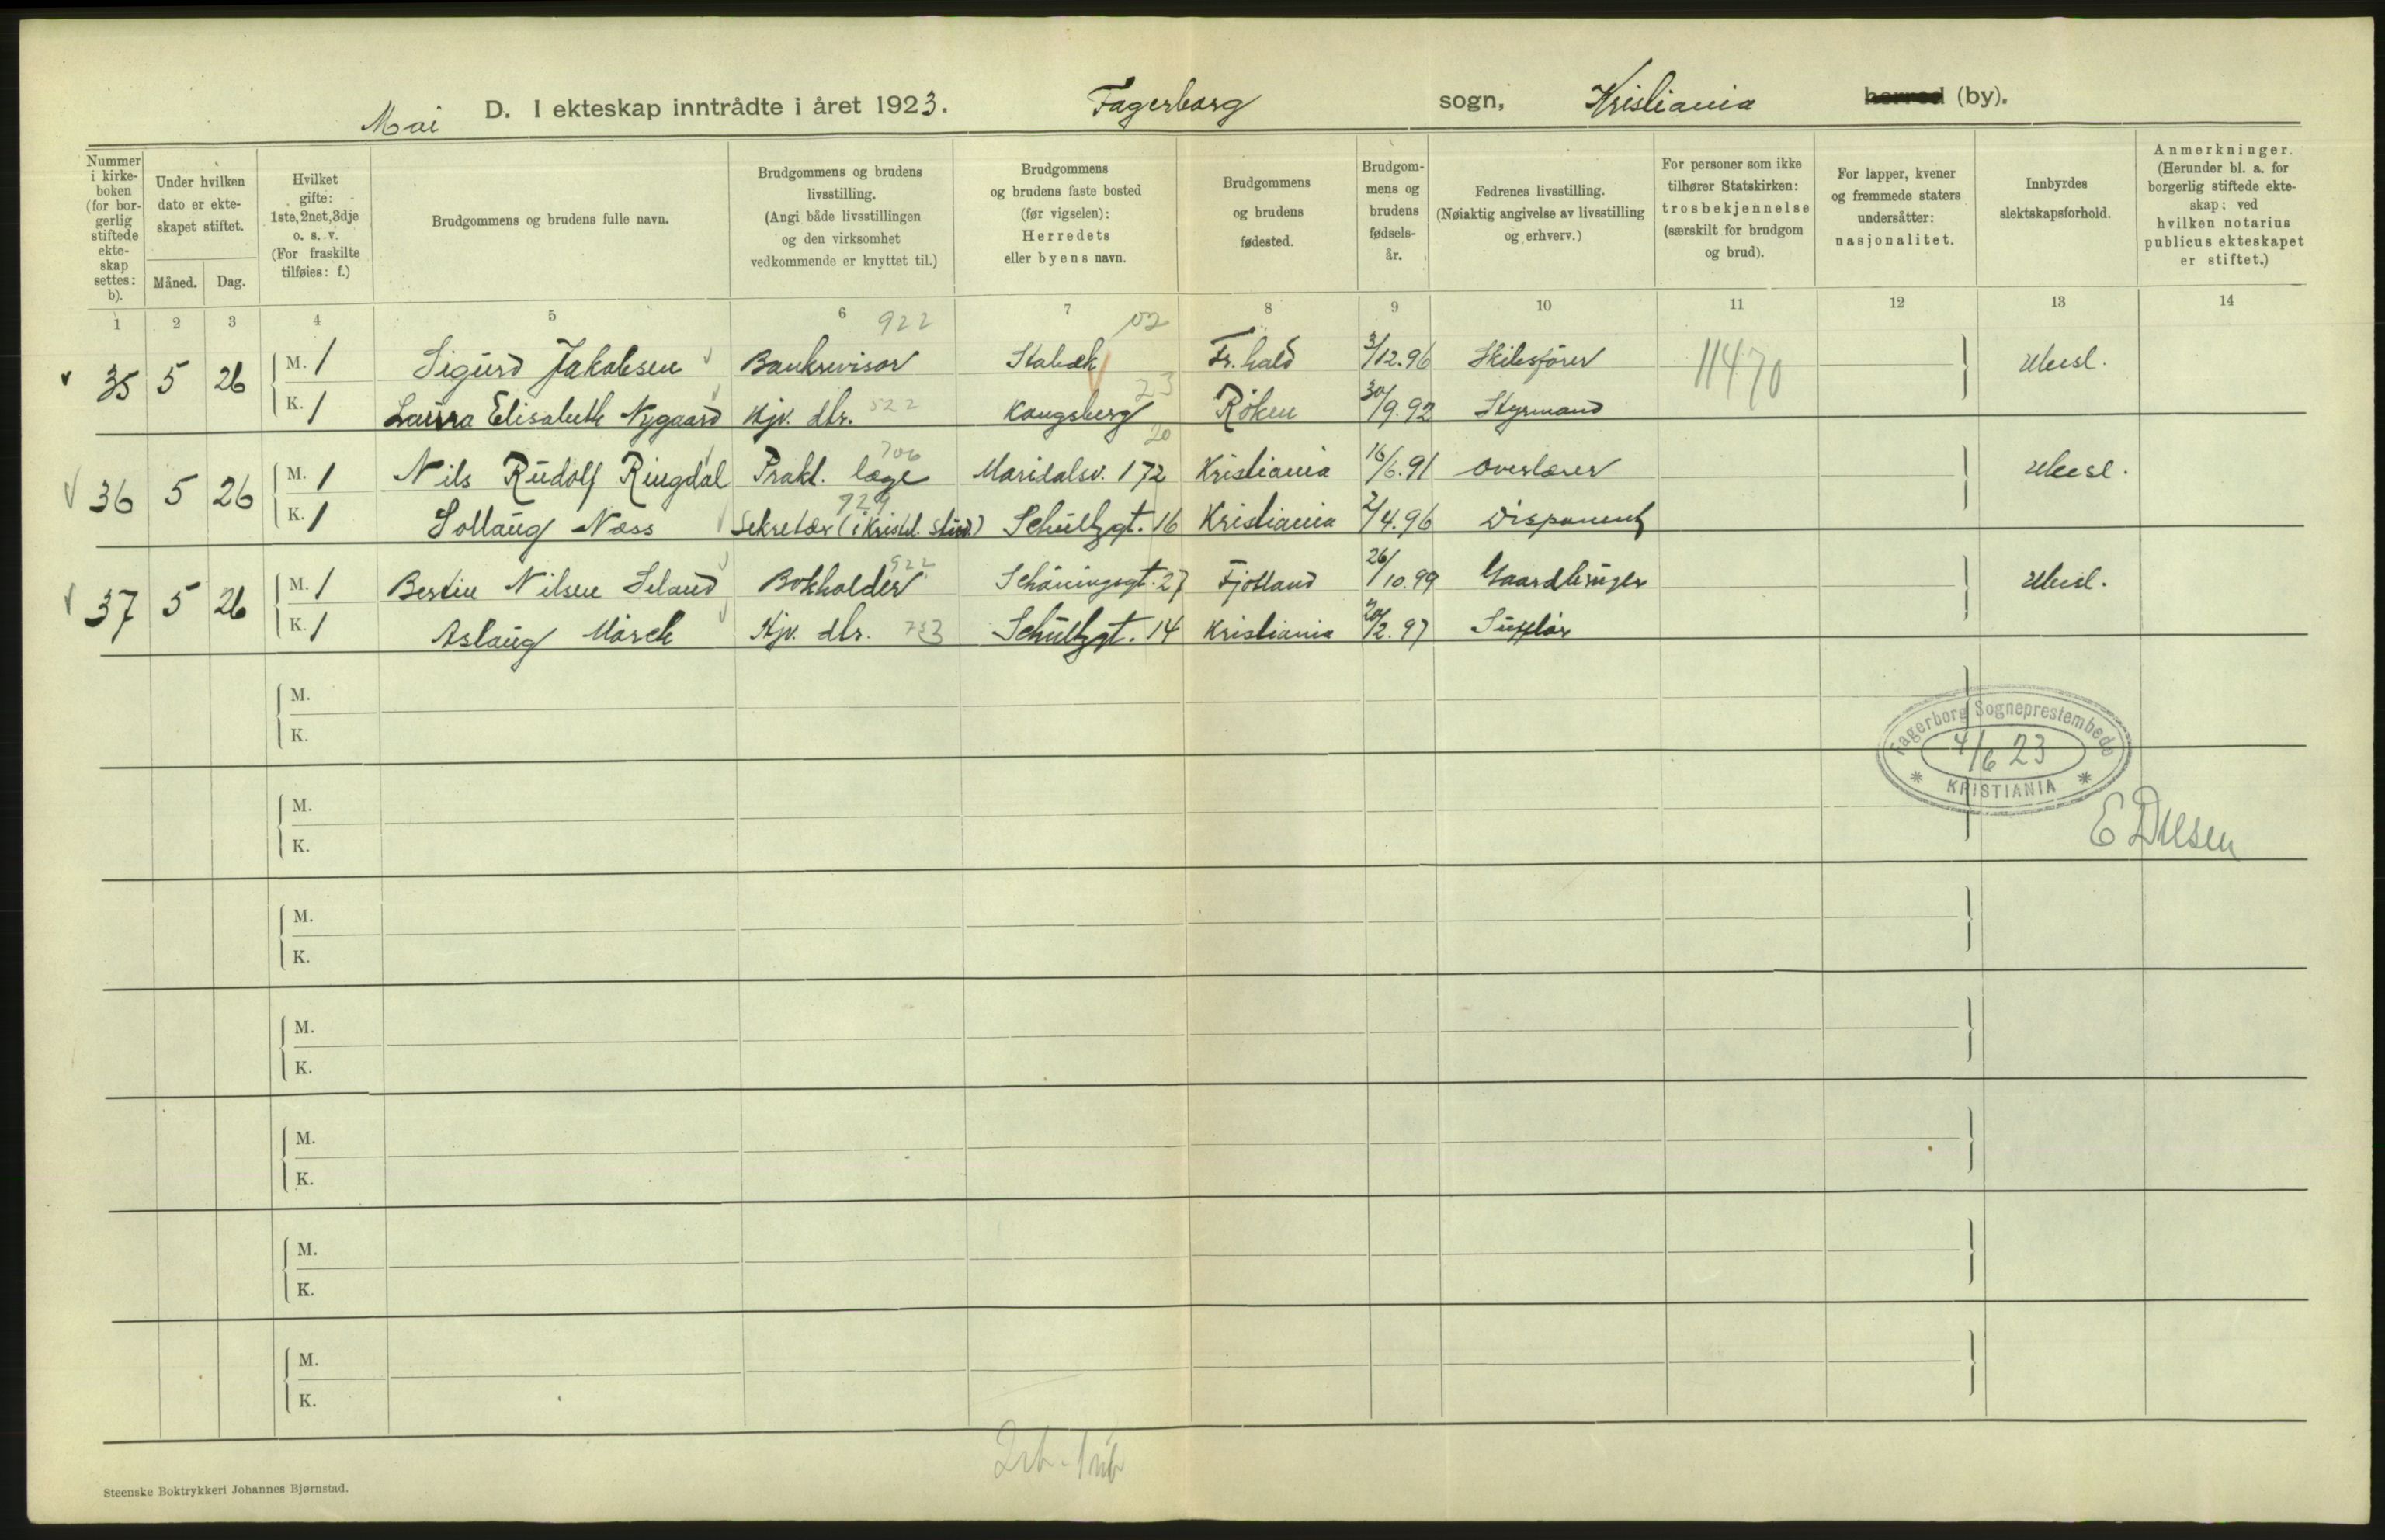 Mai D. I ekteskap inntrådte i året 1923. Fagerborg sogn, Kristiania herred (by).
Nummer i kirke- boken (for bor- gerlig stiftede ekte- skap settes: b).
Under hvilken dato er ekte- skapet stiftet.
Måned. Dag.
Hvilket gifte: 1ste, 2net, 3dje o. s. v. (For fraskilte tilføies: f.)
Brudgommens og brudens fulle navn.
Brudgommens og brudens livsstilling. (Angi både livsstillingen og den virksomhet vedkommende er knyttet til.)
Brudgommens og brudens faste bosted (før vigselen): Herredets eller byens navn.
Brudgommens og brudens fødested.
Brudgom- mens og brudens fødsels- år.
Fedrenes livsstilling. (Nøiaktig angivelse av livsstilling og erhverv.)
For personer som ikke tilhører Statskirken: trosbekjennelse (særskilt for brudgom og brud).
For lapper, kvener og fremmede staters undersåtter: nasjonalitet.
Innbyrdes slektskapsforhold.
Anmerkninger. (Herunder bl. a. for borgerlig stiftede ekte- skap: ved hvilken notarius publicus ekteskapet er stiftet.)
1 2 3 4 5 6 7 8 9 10 11 12 13 14
922 02
35 5 26 M. 1 Sigurd Jakobsen Bankrevisor Stabæk Fr.hald 3/12.96 Skibsfører 11470 Ubesl.
K. 1 Laura Elisabeth Nygaard Hjv. dtr. 522 Kongsberg 23 Røken 30/9.92 Styrmand
706 20
36 5 26 M. 1 Nils Rudolf Ringdal Prakt. læge Maridalsv. 172 Kristiania 16/6.91 Overlærer Ubesl.
K. 1 Sollaug Næss Sekretær (i Kristel. Stud.) 929 Schultzgt. 16 Kristiania 2/4.96 Disponent
922
37 5 26 M. 1 Bertin Nilsen Seland Bokholder Schøningsgt. 27 Fjotland 26/10.99 Gaardbruger Ubesl.
K. 1 Aslaug Mørch Hjv. dtr. 733 Schultzgt. 14 Kristiania 20/2.97 Sufflør
M.
K.
Fagerborg Sogneprestembede
4/6 23
KRISTIANIA
M.
E Duesen
K.
M.
K.
M.
K.
M.
K.
M.
K.
M.
K.
Steenske Boktrykkeri Johannes Bjørnstad.